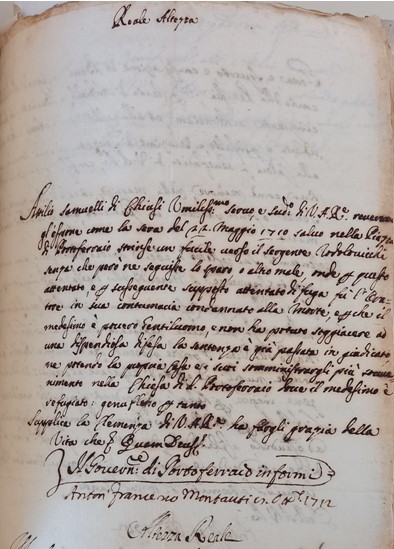 Reale Altezza
Attilio Samuelli di Chiusi Umiliss.mo Servo e Sud.o di V.A.Re. reverentem
gl'espone come la sera del 22 Maggio 1710 salvo nella Piazza
di Portoferraio strinse un fucile verso il Sergente
senza che però ne seguisse lo sparo o altro male, onde p questo
attentato, e p susseguente supposto attentato di fuga fù l'Ora
tore in sua contumacia condannato alla Morte, e p che il
medesimo è povero Gentiluomo, e non hà potuto soggiacere ad
una dispendiosa difesa la sentenza è già passata in giudicato
ne potendo la propria Casa e Stati somministrargli più
nimento nella Chiesa di Portoferraio dove il medesimo è
refugiato: genuflesso p tanto
Supplica la Clemenza di V.A.Re. a fargli grazia della
Vita che p Quam Deus.
Il Govern.re di Portoferraio informi
Anton Francesco Montauti 1712
Altezza Reale